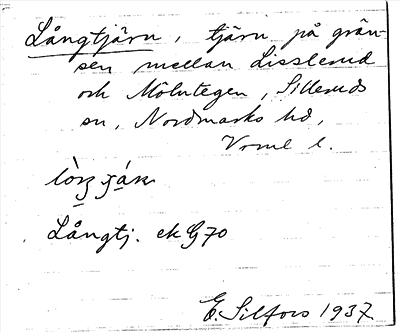 Långtjärn, tjärn på grän-
sen mellan Lisslerud
och Mölntegen, Silleruds
sn, Nordmarks hd,
Vrml l.
Långtj. ek G 70
E. Silfors 1937